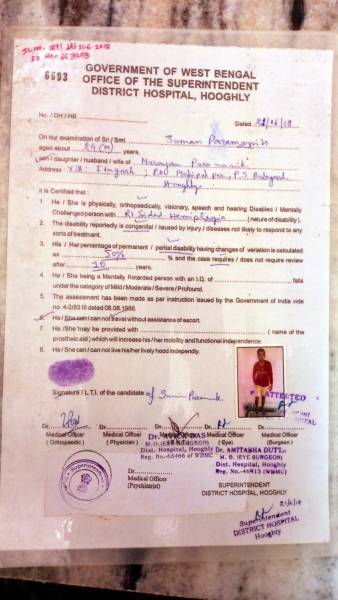 6693
GOVERNMENT OF WEST BENGAL
OFFICE OF THE SUPERINTENDENT
DISTRICT HOSPITAL, HOOGHLY
No. / DH / HB
Dated
On our examination of Sri / Smt. Suman Paramanik
aged about 24 (M) years,
son / daughter / husband / wife of Narayan Paramanik
Address : Vill:
Hooghly
It is Certified that :
1 He / She is physically, orthopedically, visionary, speech and hearing Disabled / Mentally
Challenged person with Rt Sided Hemiplegia (nature of disability).
2 The disability reportedly is congenital / caused by injury / diseases not likely to respond to any
sorts of treatment.
3 His / Her percentage of permanent / partial disability having changes of variation is calculated
as 50% % and the case requires / does not require review
after 10 years.
4 He / She being a Mentally Retarded person with an I.Q. of falls
under the category of Mild / Moderate / Severe / Profound.
5 The assessment has been made as per instruction issued by the Government of India vide
no. 4-2/83 III dated 06.08.1986.
6 He / She can / can not travel without assistance of escort.
7 He /She may be provided with ( name of the
prosthetic aid ) which will increase his / her mobility and functional independence.
8 He / She can / can not live his/her lively hood independly.
ATTESTED
Signature / L.T.I. of the candidate of Suman Paramanik
Dr. Dr. Dr. Dr. Dr.
Medical Officer Medical Officer Medical Officer Medical Officer
( Orthopaedic ) ( Physician ) (Eye) (Surgeon.)
Dist. Hospital, Hooghly
of WBMC
Dr. AMITABHA DUTTA
M. S. (EYE SURGEON)
Dist. Hospital, Hooghly
(WBMC)
Dr.
Medical Officer
(Psychiatrist)
SUPERINTENDENT
DISTRICT HOSPITAL, HOOGHLY
Superintendent
DISTRICT HOSPITAL
Hooghly